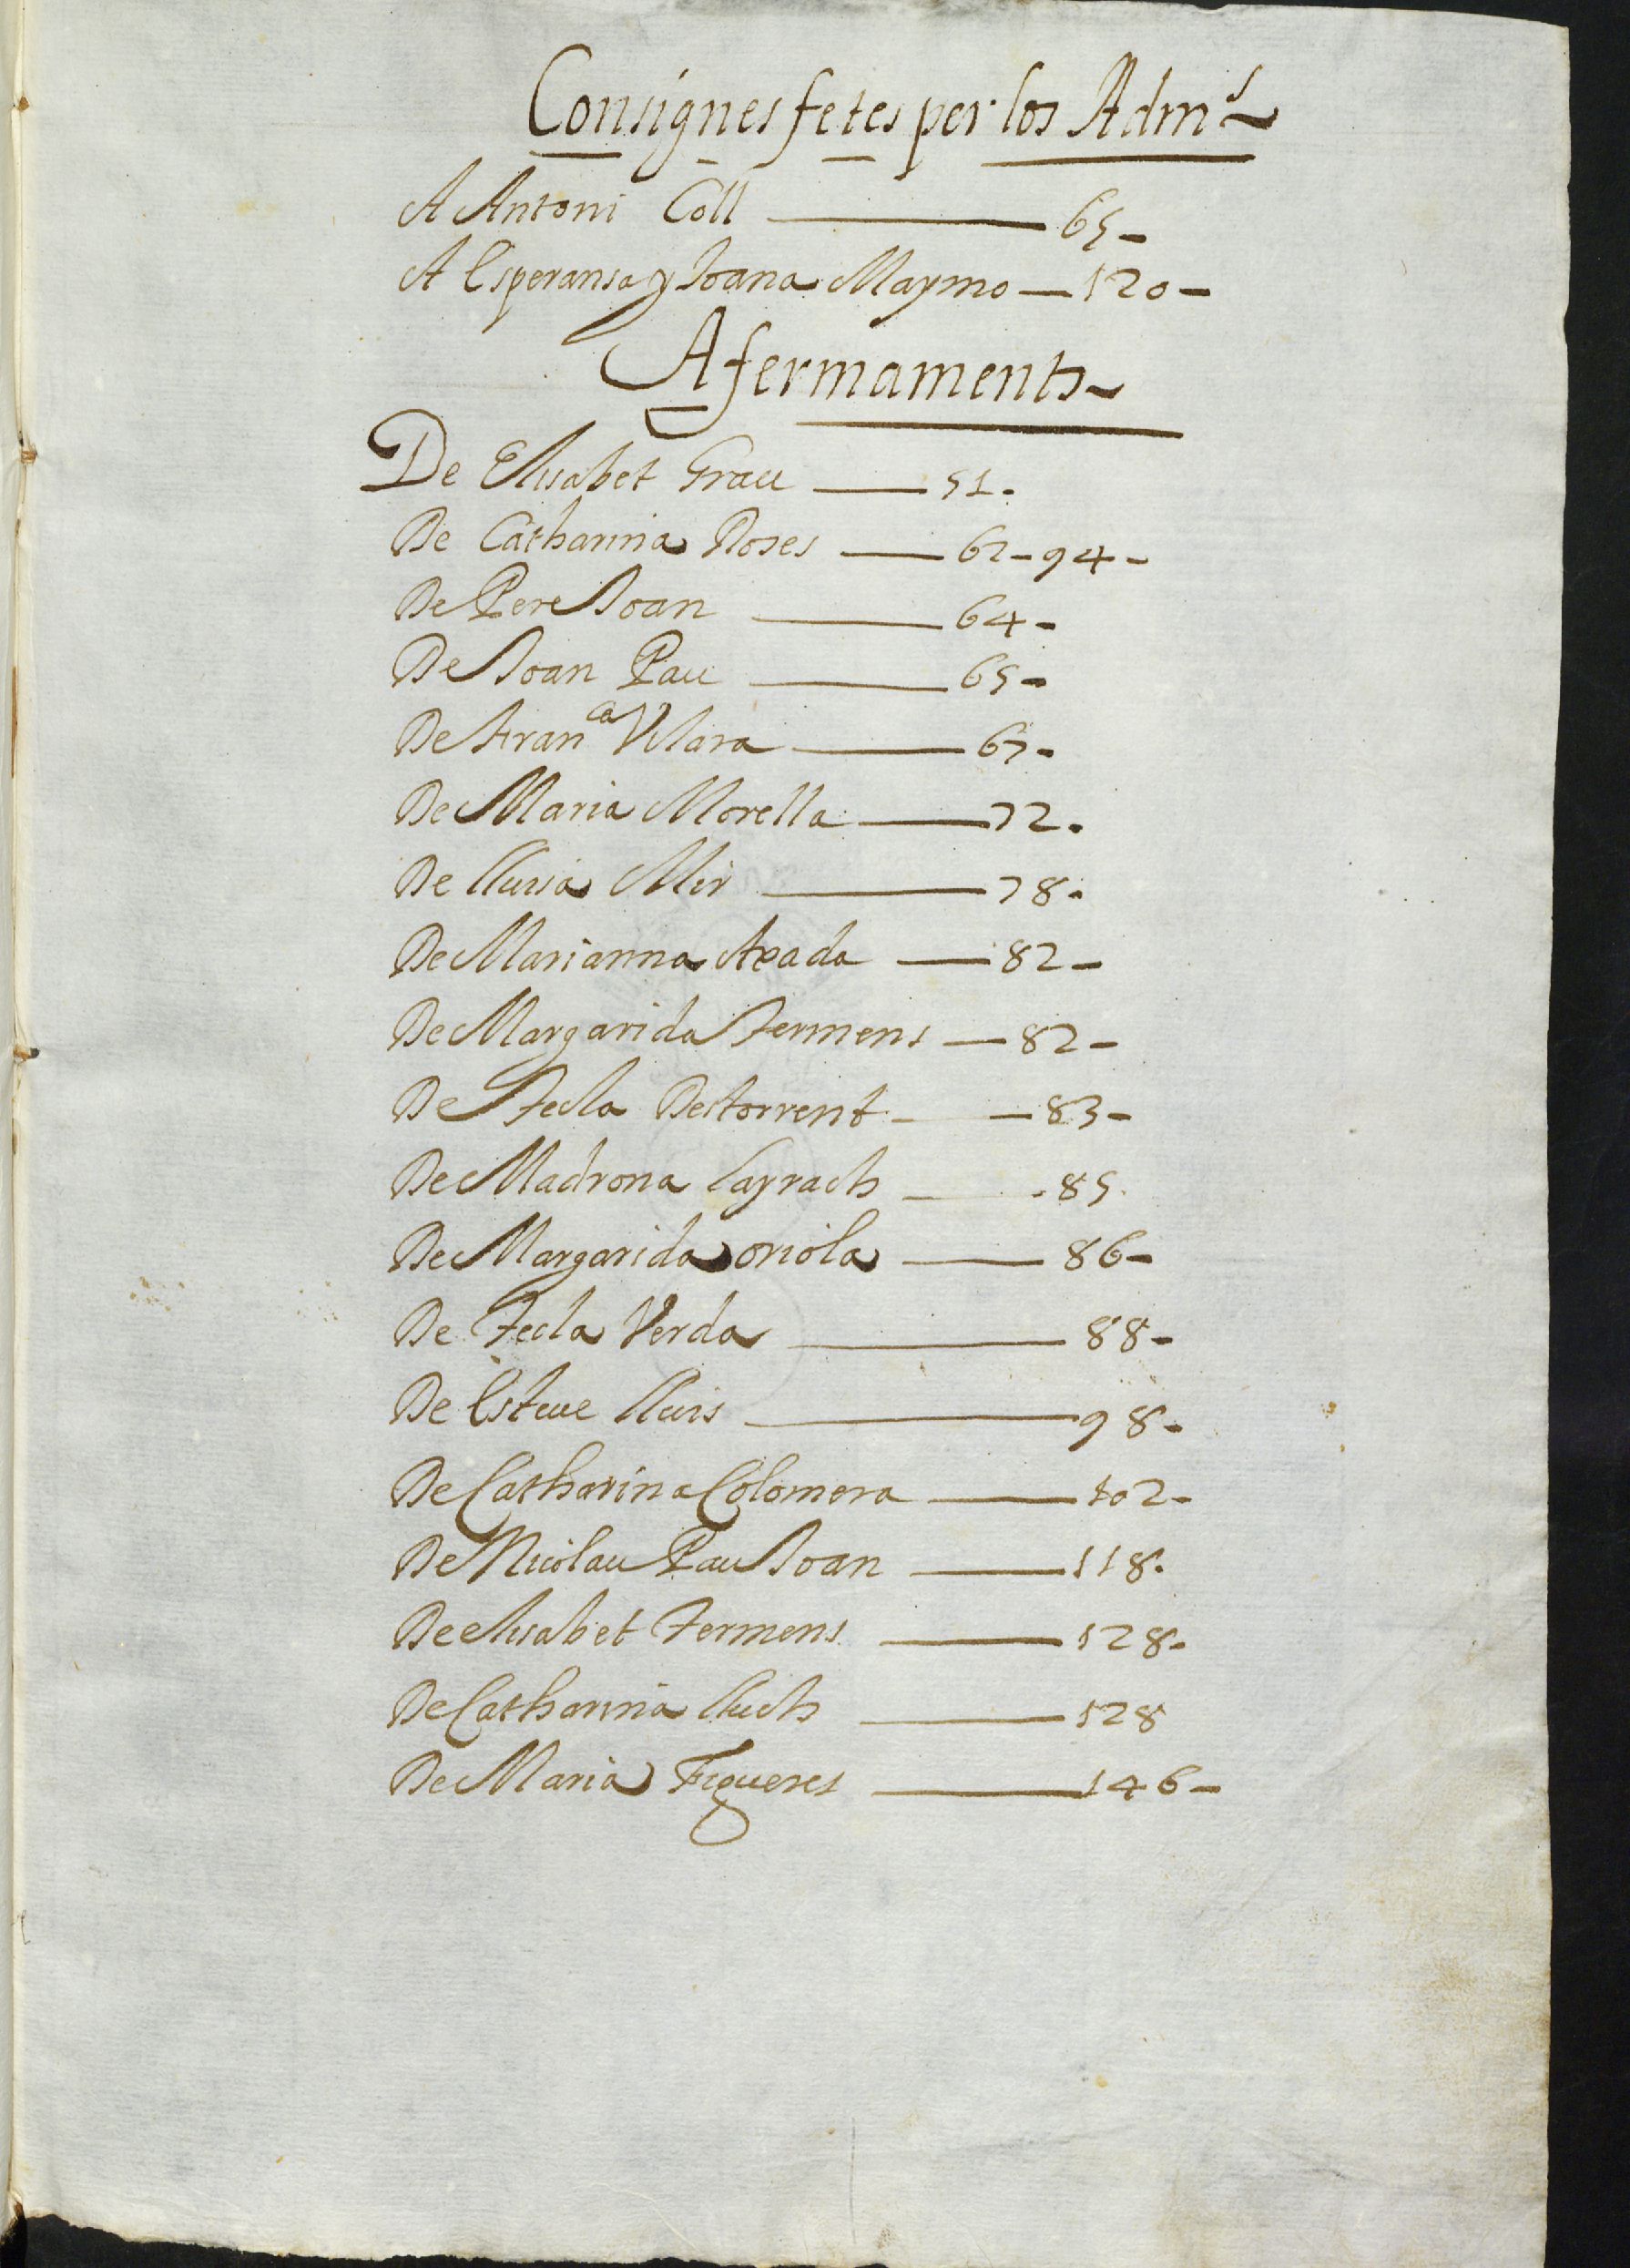 Consignes fetes per los Adm.s
A Antoni Coll — 65-
A Esperansa y Joana Maymo — 120-
Afermaments
De Elisabet Grau — 51.
De Catharina Roses — 62-94-
De Pere Joan — 64-
De Joan Pau — 65-
De Fran.ca Vilara — 67-
De Maria Morella — 72.
De Lluisa Mir — 78.
De Marianna — 82-
De Margarida Termens — 82-
De Tecla Destorrent — 83-
De Madrona Cayrach — 85.
De Margarida oriola — 86-
De Tecla Verda — 88-
De Esteve Lluis — 98-
De Catharina Colomera — 102-
De Nicolau Pau Joan — 118.
De elisabet Termens — 128-
De Catharina Lluch — 128
De Maria Figueres — 146-